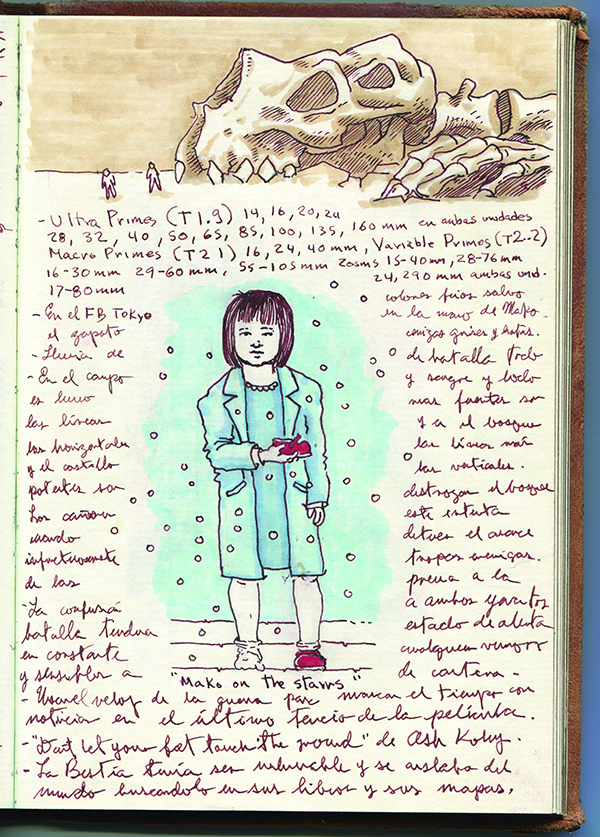 - Ultra Primes (T1.9) 14, 16, 20, 24
28, 32, 40, 50, 65, 85, 100, 135, 160 mm en ambas unidades
Macro Primes (T2 1) 16, 24, 40 mm, Variable Primes (T2.2)
16-30 mm 29-60 mm, 55-105 mm Zooms 15-40 mm, 28-76 mm
17-80 mm 24, 290 mm ambas unid.
- En el FB Tokyo colores frios salvo
el zapato en la mano de Mako.
- Lluvia de cenizas grises y
- En el campo de batalla todo
es humo y sangre y lodo
las líneas mas fuertes son
las horizontales y a el bosque
y el castillo las líneas más
potentes son las verticales.
Los cañones destrozan el bosque
cuando este intenta
infructuosamente detener el avance
de las tropas enemigas.
- La confusión previa a la
batalla tendrá a ambos
en constante estado de alerta
y sensibles a cualquier rumor
de
"Mako on the stairs"
- Usar el reloj de la guerra para marcar el tiempo con
noticias en el último tercio de la película.
- "Don't let your feet touch the ground" de Ash Koley.
- La Bestia tenía ser y se aislaba del
mundo buscandolo en sus libros y sus mapas.